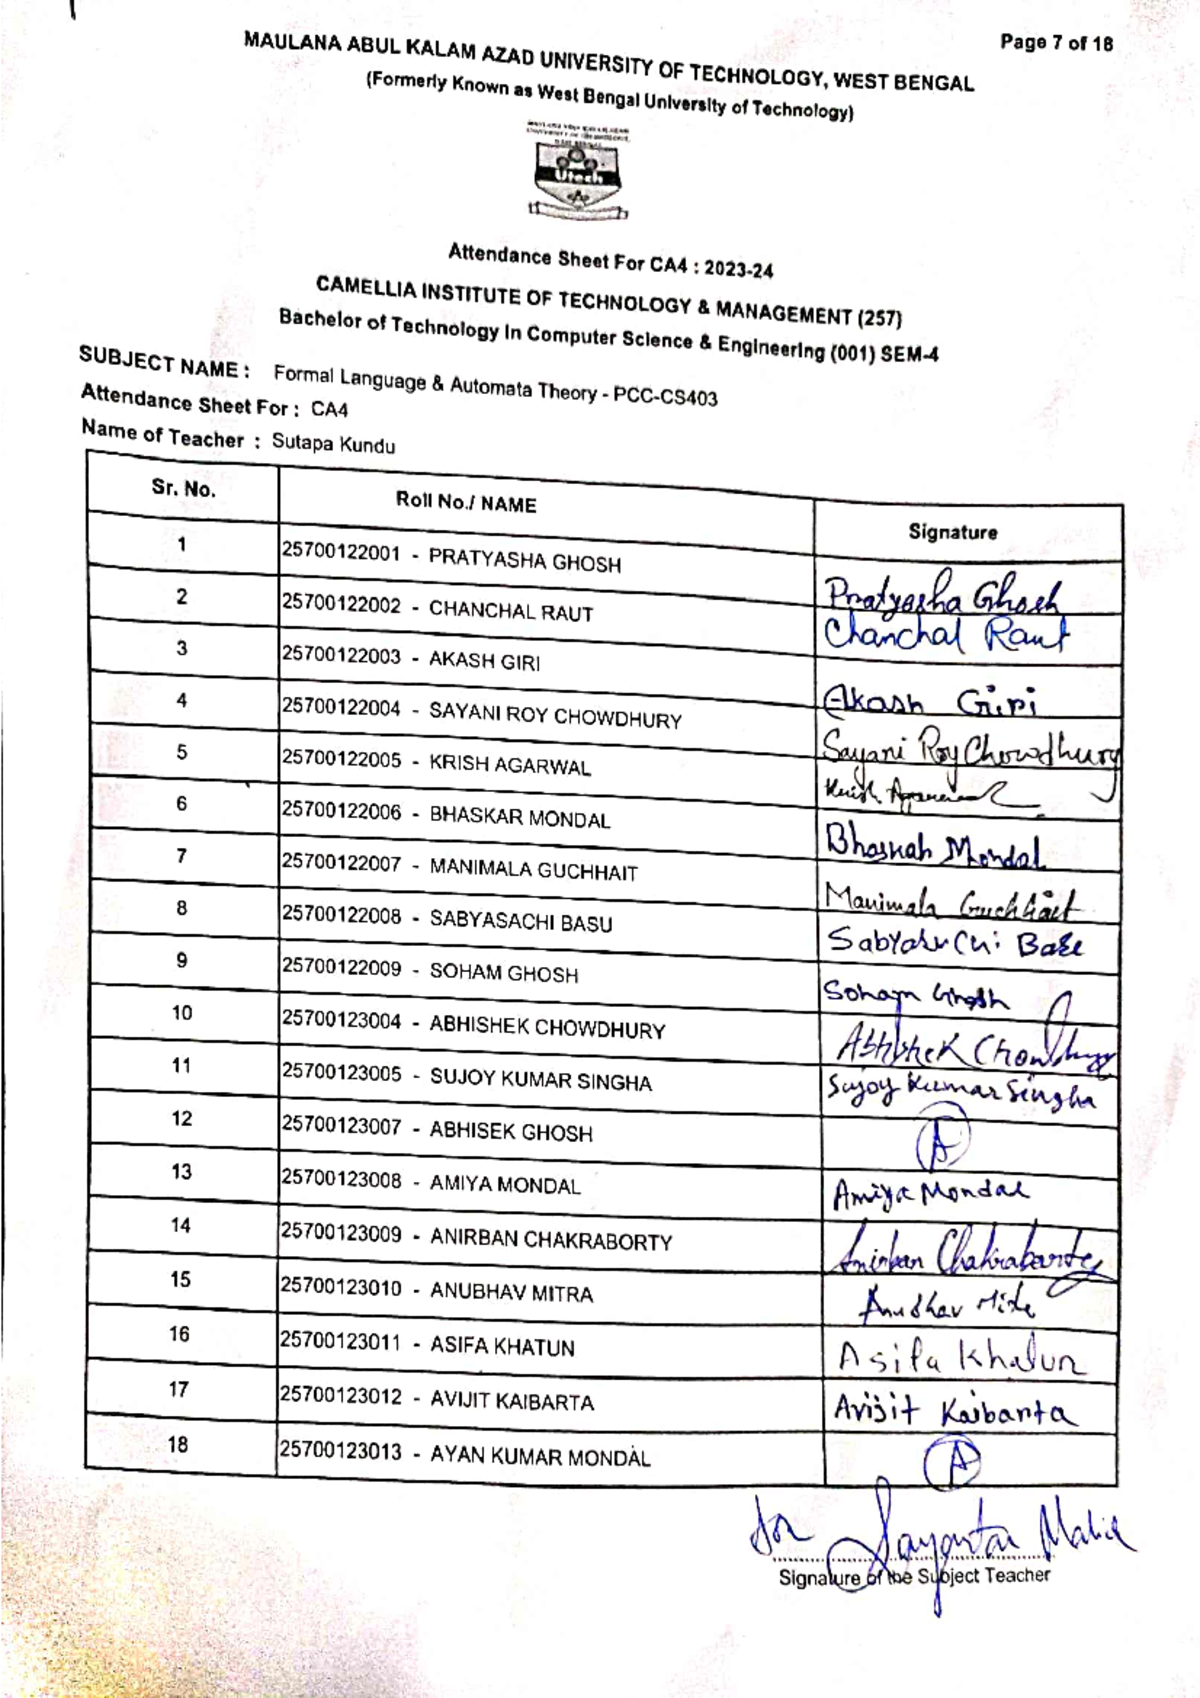 Page 7 of 18
MAULANA ABUL KALAM AZAD UNIVERSITY OF TECHNOLOGY, WEST BENGAL
(Formerly Known as West Bengal University of Technology)
Utech
Attendance Sheet For CA4 : 2023-24
CAMELLIA INSTITUTE OF TECHNOLOGY & MANAGEMENT (257)
Bachelor of Technology In Computer Science & Engineering (001) SEM-4
SUBJECT NAME : Formal Language & Automata Theory - PCC-CS403
Attendance Sheet For : CA4
Name of Teacher : Sutapa Kundu
Sr. No. Roll No./ NAME Signature
1 25700122001 - PRATYASHA GHOSH Pratyasha Ghosh
2 25700122002 - CHANCHAL RAUT Chanchal Raut
3 25700122003 - AKASH GIRI Akash Giri
4 25700122004 - SAYANI ROY CHOWDHURY Sayani Roy Chowdhury
5 25700122005 - KRISH AGARWAL Krish
6 25700122006 - BHASKAR MONDAL Bhaskar Mondal
7 25700122007 - MANIMALA GUCHHAIT Manimala Guchhait
8 25700122008 - SABYASACHI BASU
9 25700122009 - SOHAM GHOSH Soham Ghosh
10 25700123004 - ABHISHEK CHOWDHURY Abhishek Chowdhury
11 25700123005 - SUJOY KUMAR SINGHA Sujoy Kumar Singha
12 25700123007 - ABHISEK GHOSH A
13 25700123008 - AMIYA MONDAL Amiya Mondal
14 25700123009 - ANIRBAN CHAKRABORTY Anirban Chakraborty
15 25700123010 - ANUBHAV MITRA Anubhav Mitra
16 25700123011 - ASIFA KHATUN Asifa Khatun
17 25700123012 - AVIJIT KAIBARTA Avijit Kaibarta
18 25700123013 - AYAN KUMAR MONDAL A
for Sayantan Malik
Signature of the Subject Teacher